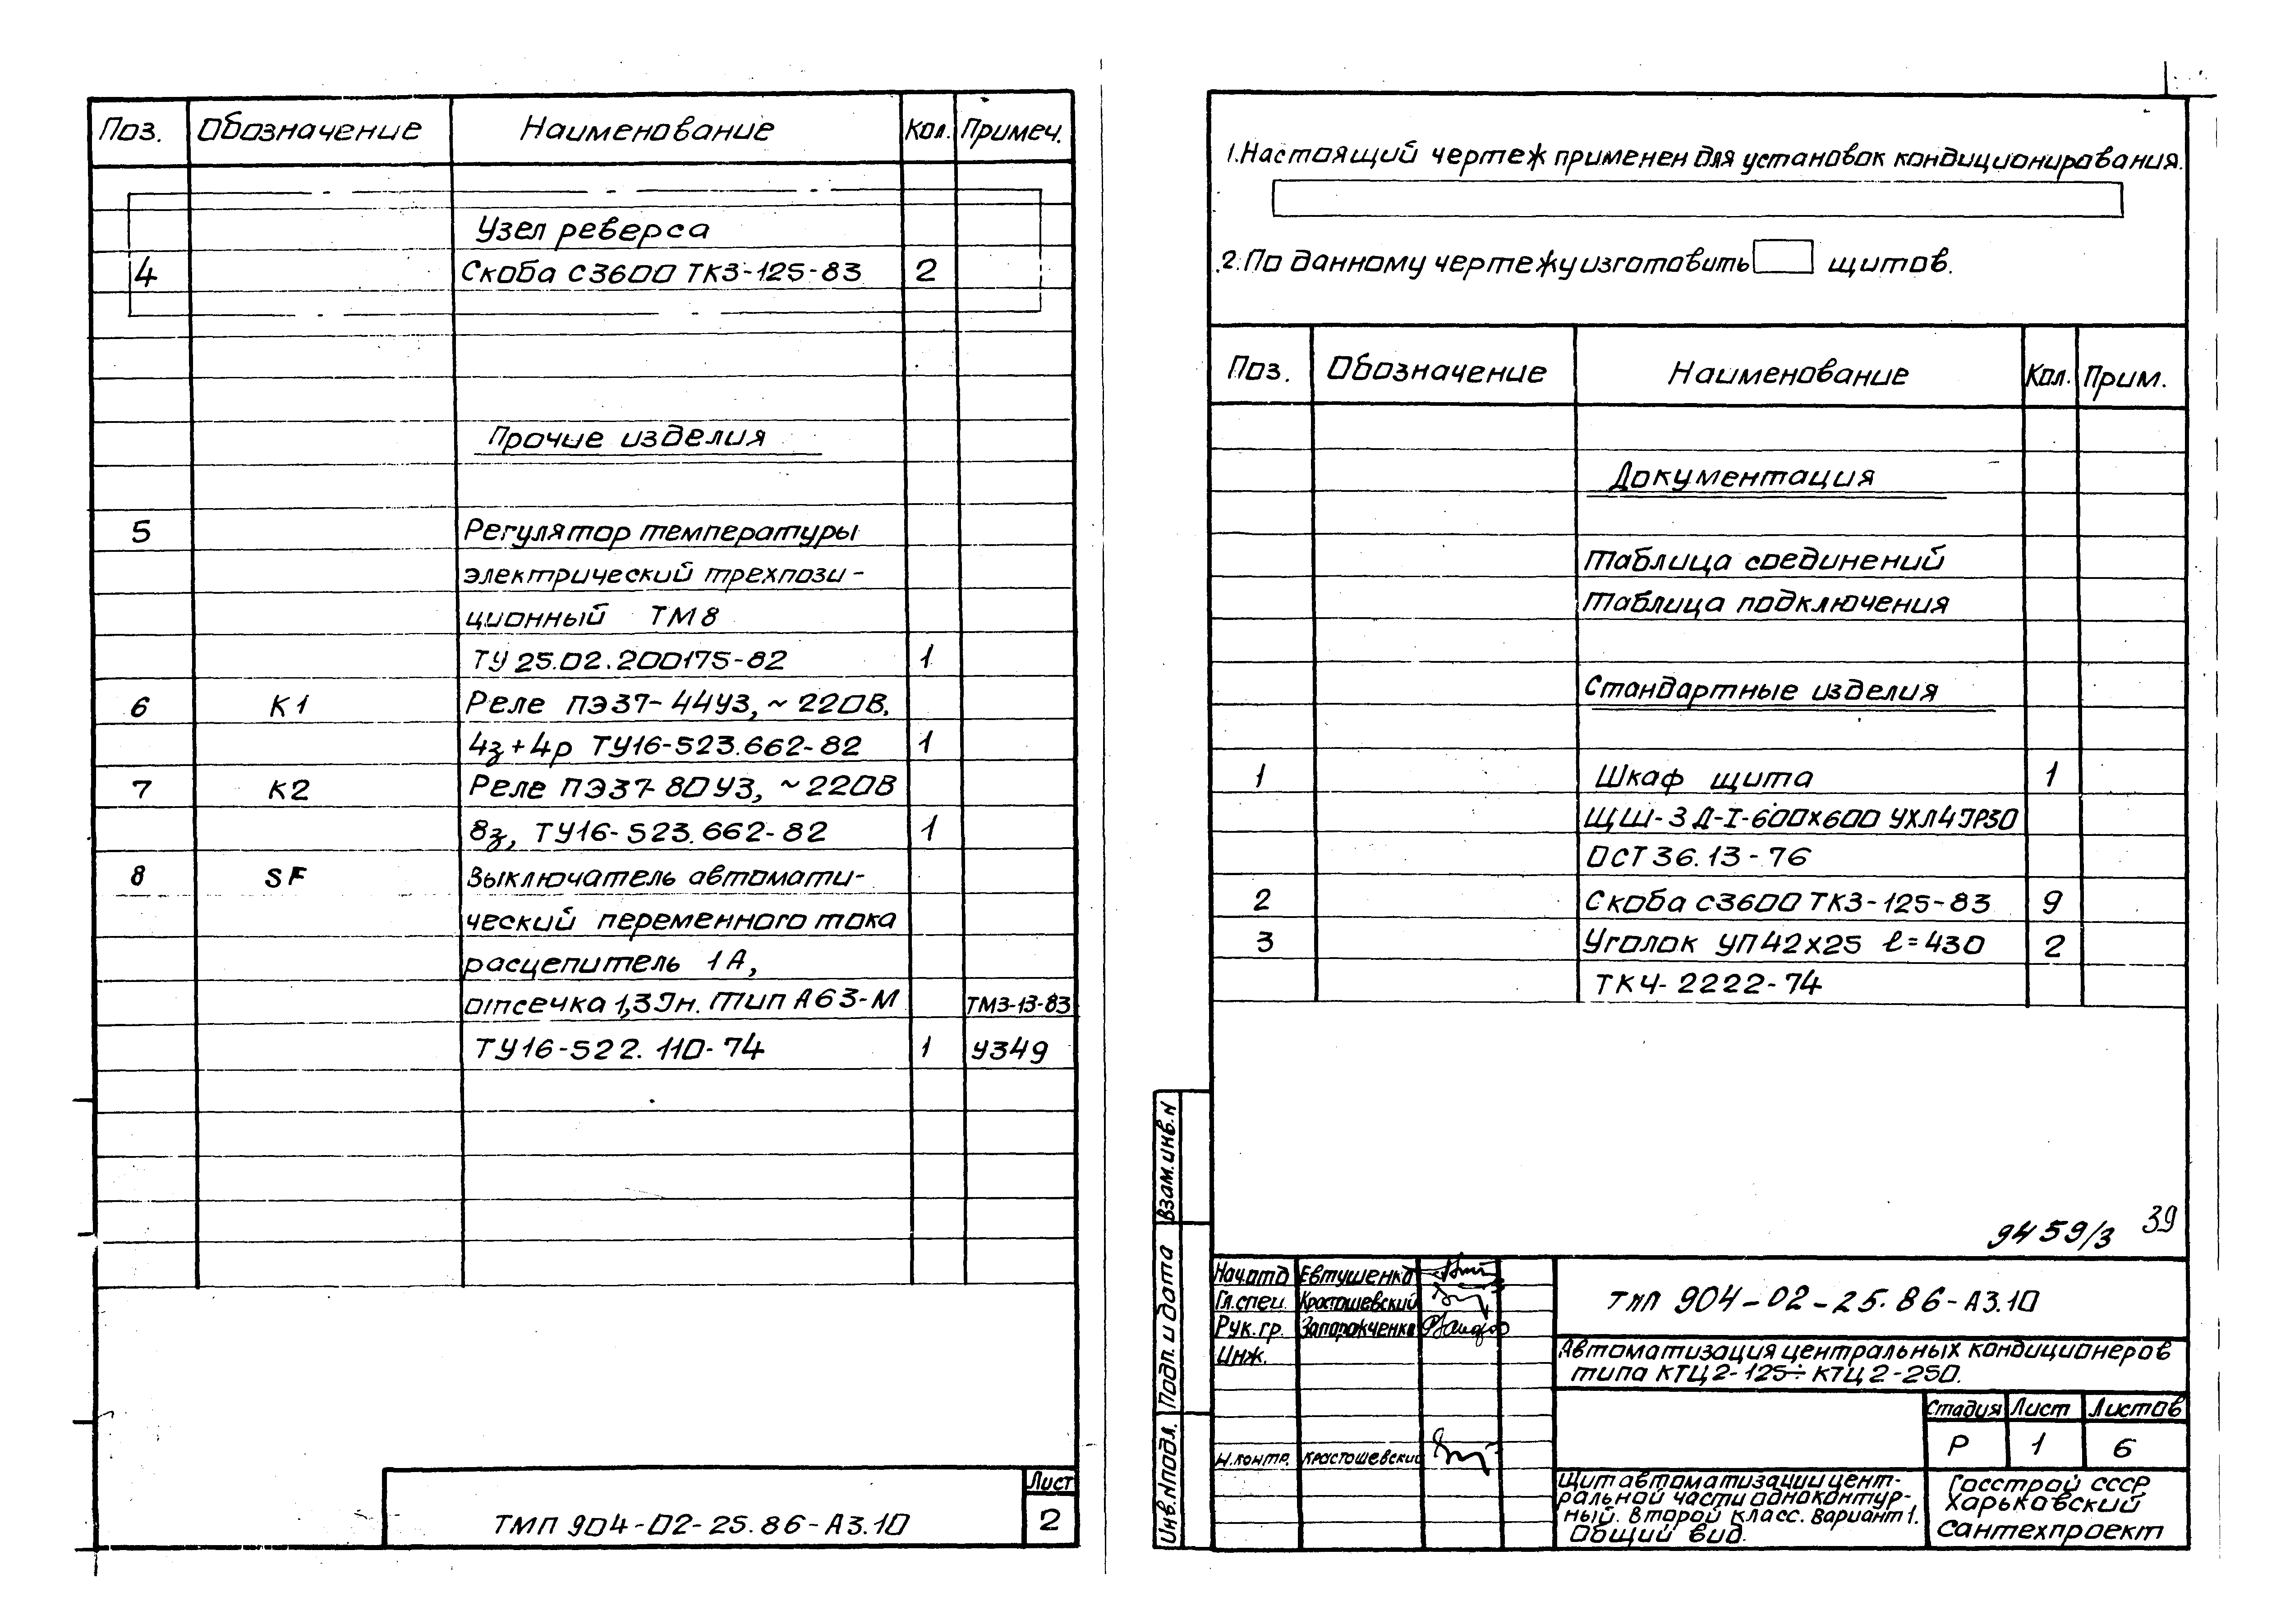 Поз. Обозначение Наименование Кол. Примеч.
Узел реверса
4 Скоба С3600 ТКЗ-125-83 2
Прочие изделия
5 Регулятор температуры
электрический трехпози-
ционный ТМ8
ТУ 25.02.200175-82 1
6 К1 Реле ПЭ37-44У3, ~220В,
4з+4р ТУ16-523.662-82 1
7 К2 Реле ПЭ37-80У3, ~220В
8з, ТУ16-523.662-82 1
8 SF Выключатель автомати-
ческий переменного тока
расцепитель 1А,
отсечка 1,3Iн. тип А63-М ТМ3-13-83
ТУ16-522.110-74 1 У349
Лист
ТМП 904-02-25.86-А3.10 2
1.Настоящий чертеж применен для установок кондиционирования.
2.По данному чертежу изготовить щитов.
Поз. Обозначение Наименование Кол. Прим.
Документация
Таблица соединений
Таблица подключения
Стандартные изделия
1 Шкаф щита 1
ЩШ-ЗД-I-600х600 УХЛ4 IP30
ОСТ 36.13-76
2 Скоба С3600 ТКЗ-125-83 9
3 Уголок УП42х25 ℓ=430 2
ТКЧ-2222-74
9459/3 39
Взам.инв.N
Подп. и дата
Инв.Nподл.
Нач.отд Евтушенко
Гл.спец. Красташевский
Рук.гр. Запорожченко
Инж.
Н.контр. Красташевский
ТМП 904-02-25.86-А3.10
Автоматизация центральных кондиционеров
типа КТЦ2-125÷КТЦ2-250.
Стадия Лист Листов
Р 1 6
Щит автоматизации цент-
ральной части одноконтур-
ный. Второй класс. Вариант 1.
Общий вид.
Госстрой СССР
Харьковский
Сантехпроект